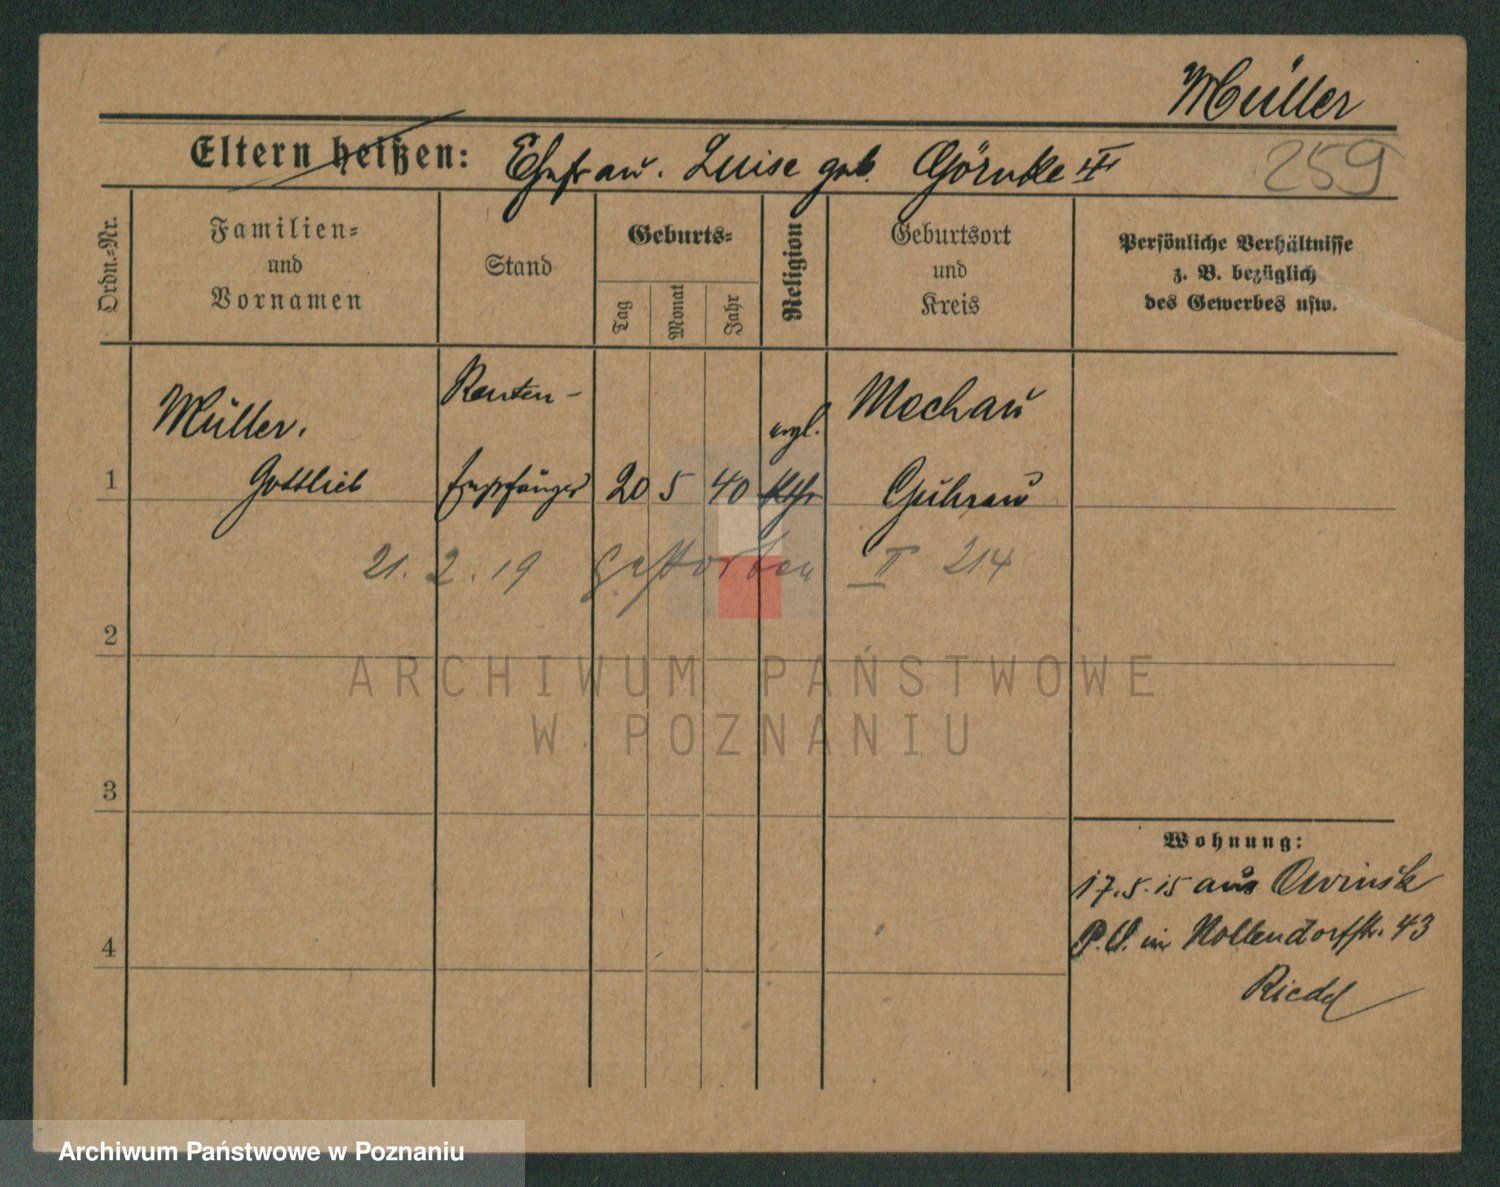 Müller
Eltern heißen: Ehefrau. Luise geb. Görnke II
259
Ordn.-Nr.
Familien-
und
Vornamen
Stand
Geburts-
Tag
Monat
Jahr
Religion
Geburtsort
und
Kreis
Persönliche Verhältnisse
z. B. bezüglich
des Gewerbes usw.
Müller.
Renten-
evgl.
Mechau
1 Gottlieb Empfänger 20 5 40 Kth Guhrau
21. 2. 19 Gestorben II 214
2
ARCHIWUM PAŃSTWOWE
W POZNANIU
3
Wohnung:
17.5.15 aus Owinsk
4
P.V. in Nollendorfstr. 43
Riedel
Archiwum Państwowe w Poznaniu